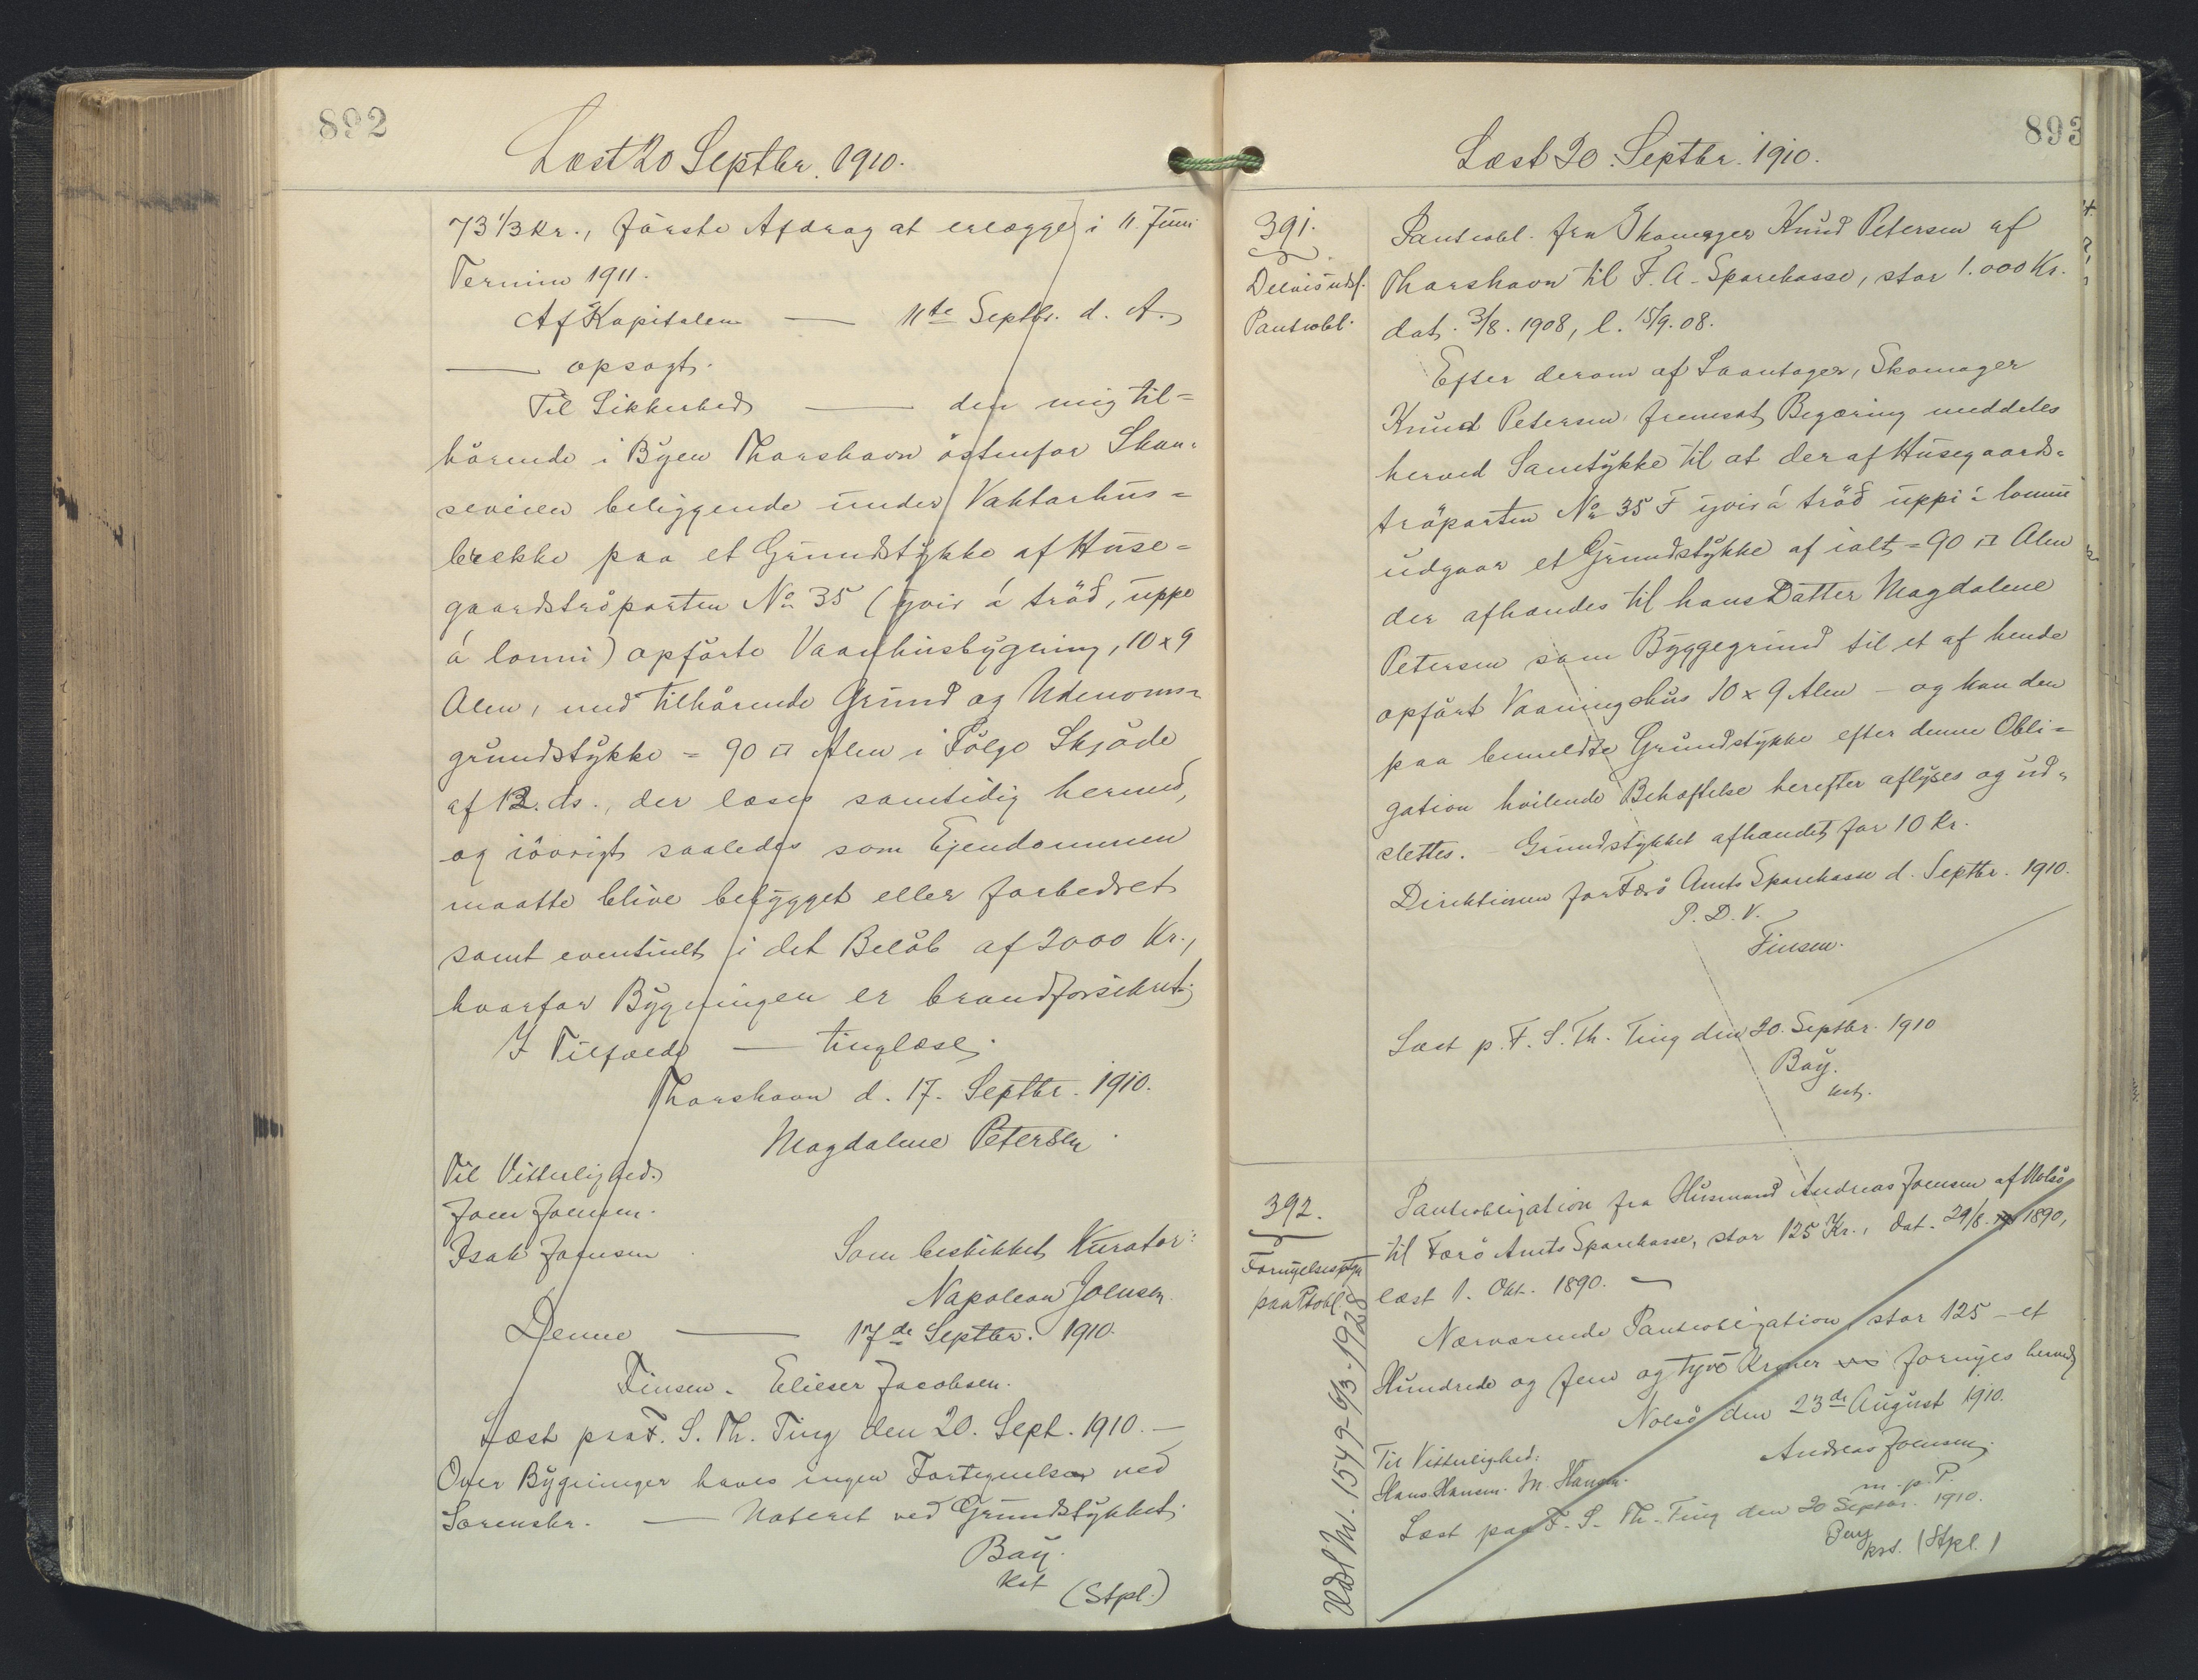 892
Læst 20 Septbr. 1910.
73 1/3 kr., förste Afdrag at erlægges i 11. Juni
Termin 1911.
Af Kapitalen — 11te Septbr. d. A.
— opsagt.
Til Sikkerhed — den mig til=
hörende i Byen Thorshavn östenfor Skan=
seveien beliggende under Vaktarhus=
brekke paa et Grundstykke af Huse=
gaardströparten No 35 (yvir á tröð, uppe
á lonni) opförte Vaanhusbygning, 10 x 9
Alen, med tilhörende Grund og Udenoms=
grundstykke = 90 □ Alen i Fölge Skjöde
af 12. ds., der læses samtidig hermed,
og iövrigt saaledes som Ejendommen
maatte blive bebygget eller forbedret
samt eventuelt i det Belöb af 2000 Kr.,
hvorfor Bygningen er brandforsikret.
I Tilfælde — tinglæse.
Thorshavn d. 17. Septbr. 1910.
Magdalene Petersen.
Til Vitterlighed.
Joen Joensen.
Isak Joensen
Som beskikket Kurator:
Napoleon Joensen.
Denne — 17de Septbr. 1910.
Finsen. Elieser Jacobsen.
Læst paa F. S. Th. Ting den 20. Sept. 1910. —
Over Bygninger haves ingen Fortegnelser ved
Sorenskr. — Noteret ved Grundstykket.
Bay.
kst
(Stpl.)
893
Læst 20. Septbr. 1910.
391.
Delvis udsl.
Pantobl.
Pantobl. fra Skomager Knud Petersen af
Thorshavn til F. A. Sparekasse, stor 1.000 Kr.
dat. 3/8. 1908, l. 15/9. 08.
Efter derom af Laantager, Skomager
Knud Petersen fremsat Begæring meddeles
herved Samtykke til at der af Husegaards=
tröparten No 35 F yvir á tröð uppi á lonni
udgaar et Grundstykke af ialt = 90 □ Alen
der afhændes til hans Datter Magdalene
Petersen som Byggegrund til et af hende
opfört Vaaningshus 10 x 9 Alen – og kan den
paa bemeldte Grundstykke efter denne Obli=
gation hvilende Behæftelse herefter aflyses og ud=
slettes. – Grundstykket afhændet for 10 Kr.
Direktionen for Færö Amts Sparekasse d. Septbr. 1910.
P. D. V.
Finsen.
Læst p. F. S. Th. Ting den 20. Septbr. 1910
Bay.
kst.
392.
Fornyelsesptgn
paa Ptobl.
Pantobligation fra Husmand Andreas Joensen af Nolsö
til Færö Amts Sparekasse, stor 125 Kr., dat. 29/8. 1890,
læst 1. Okt. 1890. —
Nærværende Pantobligation stor 125 – et
Hundrede og fem og tyve Kroner fornyes herved
Nolsö den 23de August 1910.
Til Vitterlighed:
Andreas Joensen.
Hans Hansen. M. Hansen.
m. p. P.
Læst paa F. S. Th. Ting den 20 Septbr. 1910.
Bay
kst. (Stpl.)
Udsl Nr. 1549-6/3-1928